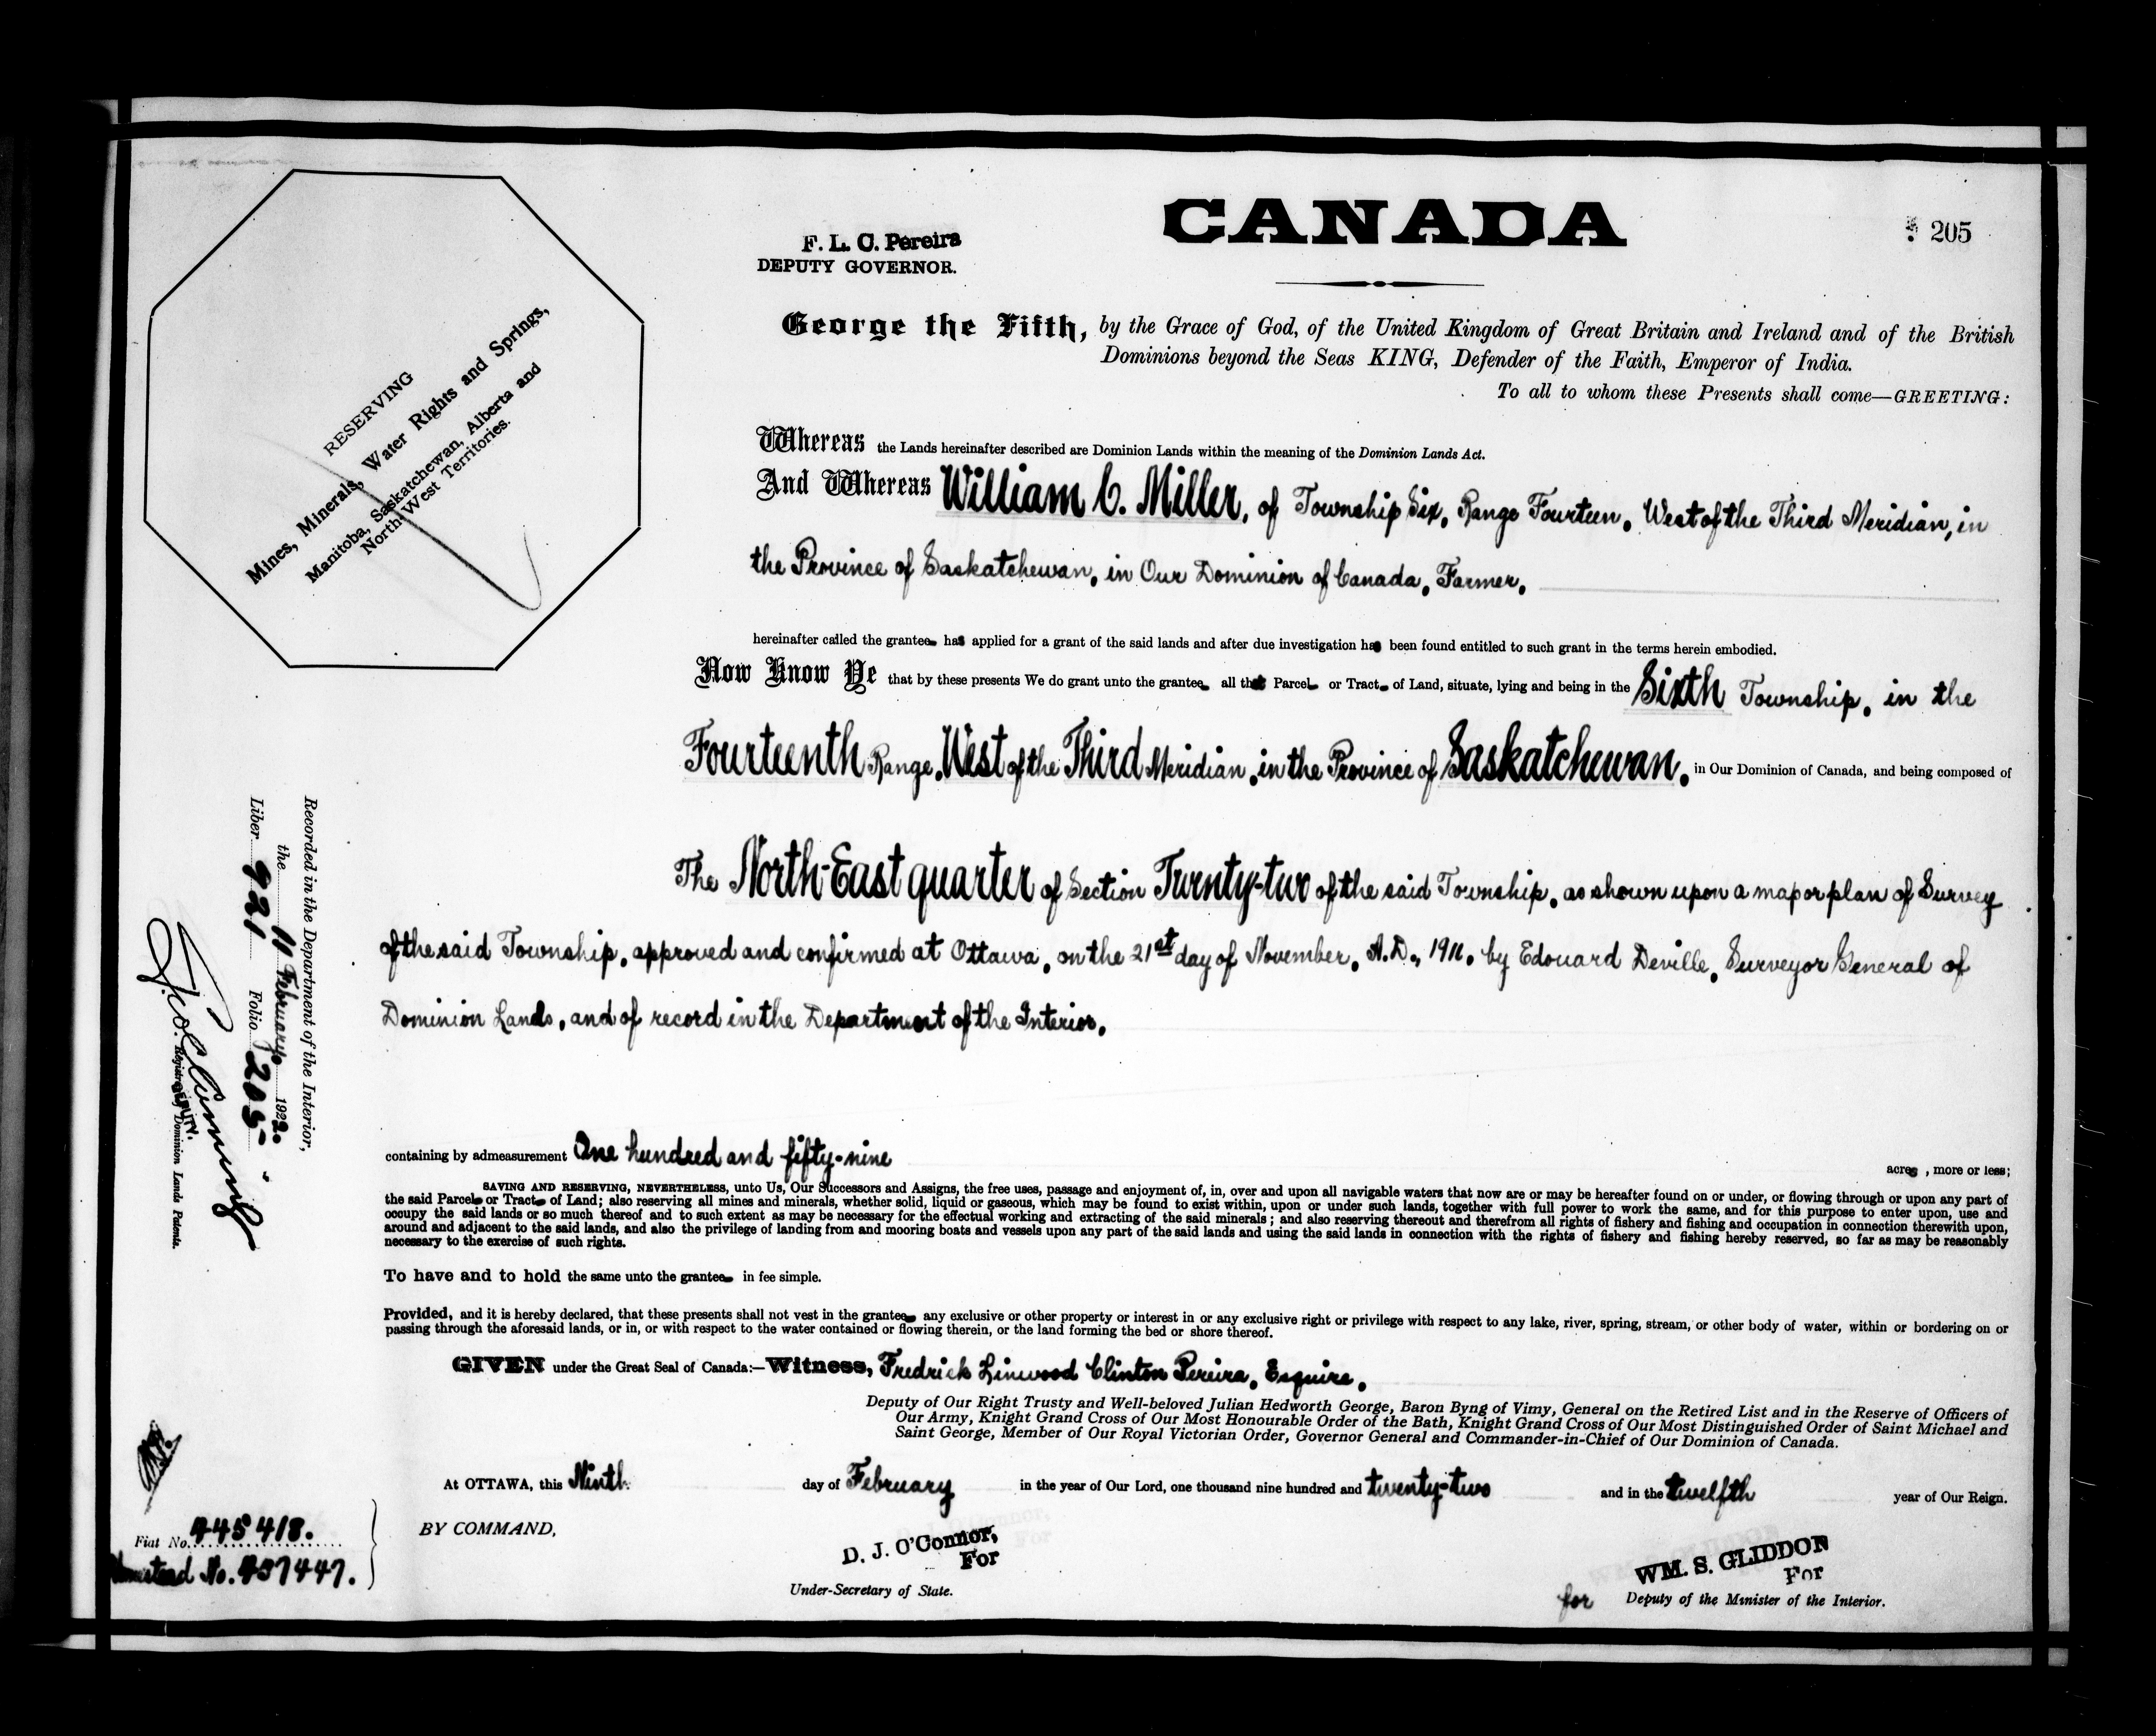 CANADA
205
F. L. C. Pereira
DEPUTY GOVERNOR.
RESERVING
Mines, Minerals, Water Rights and Springs,
Manitoba, Saskatchewan, Alberta and
North-West Territories.
George the Fifth, by the Grace of God, of the United Kingdom of Great Britain and Ireland and of the British
Dominions beyond the Seas KING, Defender of the Faith, Emperor of India.
To all to whom these Presents shall come—GREETING:
Whereas the Lands hereinafter described are Dominion Lands within the meaning of the Dominion Lands Act.
And Whereas William C. Miller, of Township Six, Range Fourteen, West of the Third Meridian, in
the Province of Saskatchewan, in Our Dominion of Canada, Farmer,
hereinafter called the grantee has applied for a grant of the said lands and after due investigation has been found entitled to such grant in the terms herein embodied.
Now Know Ye that by these presents We do grant unto the grantee all that Parcel or Tract of Land, situate, lying and being in the Sixth Township, in the
Fourteenth Range, West of the Third Meridian, in the Province of Saskatchewan, in Our Dominion of Canada, and being composed of
The North-East quarter of Section Twenty-two of the said Township, as shown upon a map or plan of Survey
of the said Township, approved and confirmed at Ottawa, on the 21st day of November, A.D., 1911, by Edouard Deville, Surveyor General of
Dominion Lands, and of record in the Department of the Interior,
Recorded in the Department of the Interior,
the 11 February, 1922.
Liber 921 Folio 205
DEPUTY.
Registrar of Dominion Lands Patents.
containing by admeasurement One hundred and fifty-nine acres, more or less;
SAVING AND RESERVING, NEVERTHELESS, unto Us, Our Successors and Assigns, the free uses, passage and enjoyment of, in, over and upon all navigable waters that now are or may be hereafter found on or under, or flowing through or upon any part of
the said Parcel or Tract of Land; also reserving all mines and minerals, whether solid, liquid or gaseous, which may be found to exist within, upon or under such lands, together with full power to work the same, and for this purpose to enter upon, use and
occupy the said lands or so much thereof and to such extent as may be necessary for the effectual working and extracting of the said minerals; and also reserving thereout and therefrom all rights of fishery and fishing and occupation in connection therewith upon,
around and adjacent to the said lands, and also the privilege of landing from and mooring boats and vessels upon any part of the said lands and using the said lands in connection with the rights of fishery and fishing hereby reserved, so far as may be reasonably
necessary to the exercise of such rights.
To have and to hold the same unto the grantee in fee simple.
Provided, and it is hereby declared, that these presents shall not vest in the grantee any exclusive or other property or interest in or any exclusive right or privilege with respect to any lake, river, spring, stream, or other body of water, within or bordering on or
passing through the aforesaid lands, or in, or with respect to the water contained or flowing therein, or the land forming the bed or shore thereof.
GIVEN under the Great Seal of Canada:—Witness, Fredrick Linwood Clinton Pereira, Esquire,
Deputy of Our Right Trusty and Well-beloved Julian Hedworth George, Baron Byng of Vimy, General on the Retired List and in the Reserve of Officers of
Our Army, Knight Grand Cross of Our Most Honourable Order of the Bath, Knight Grand Cross of Our Most Distinguished Order of Saint Michael and
Saint George, Member of Our Royal Victorian Order, Governor General and Commander-in-Chief of Our Dominion of Canada.
At OTTAWA, this Ninth day of February in the year of Our Lord, one thousand nine hundred and twenty-two and in the twelfth year of Our Reign.
BY COMMAND,
Fiat No. 445418.
Homestead No. 437447.
D. J. O'Connor,
For
Under-Secretary of State.
WM. S. GLIDDON
For
for Deputy of the Minister of the Interior.